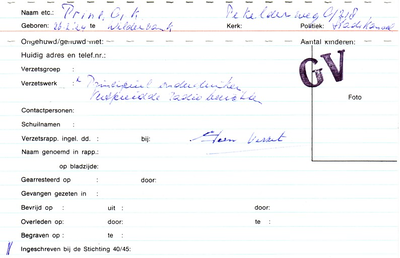 Naam etc.: Prins, G.K. Pekelderweg
Geboren: te Wildervank Kerk: Politiek: Stadskanaal
Ongehuwd/gehuwd met: Aantal kinderen:
Huidig adres en telef.nr.:
Verzetsgroep :
Verzetswerk : Principieel onderduiker
Verspreidde radioberichten
GV
Foto
Contactpersonen:
Schuilnaam :
Verzetsrapp. ingel. dd. : bij: Geen
Naam genoemd in rapp.:
op bladzijde:
Gearresteerd op : door:
Gevangen gezeten in :
Bevrijd op : uit : door:
Overleden op : door: te :
Begraven op : te :
Ingeschreven bij de Stichting 40/45: